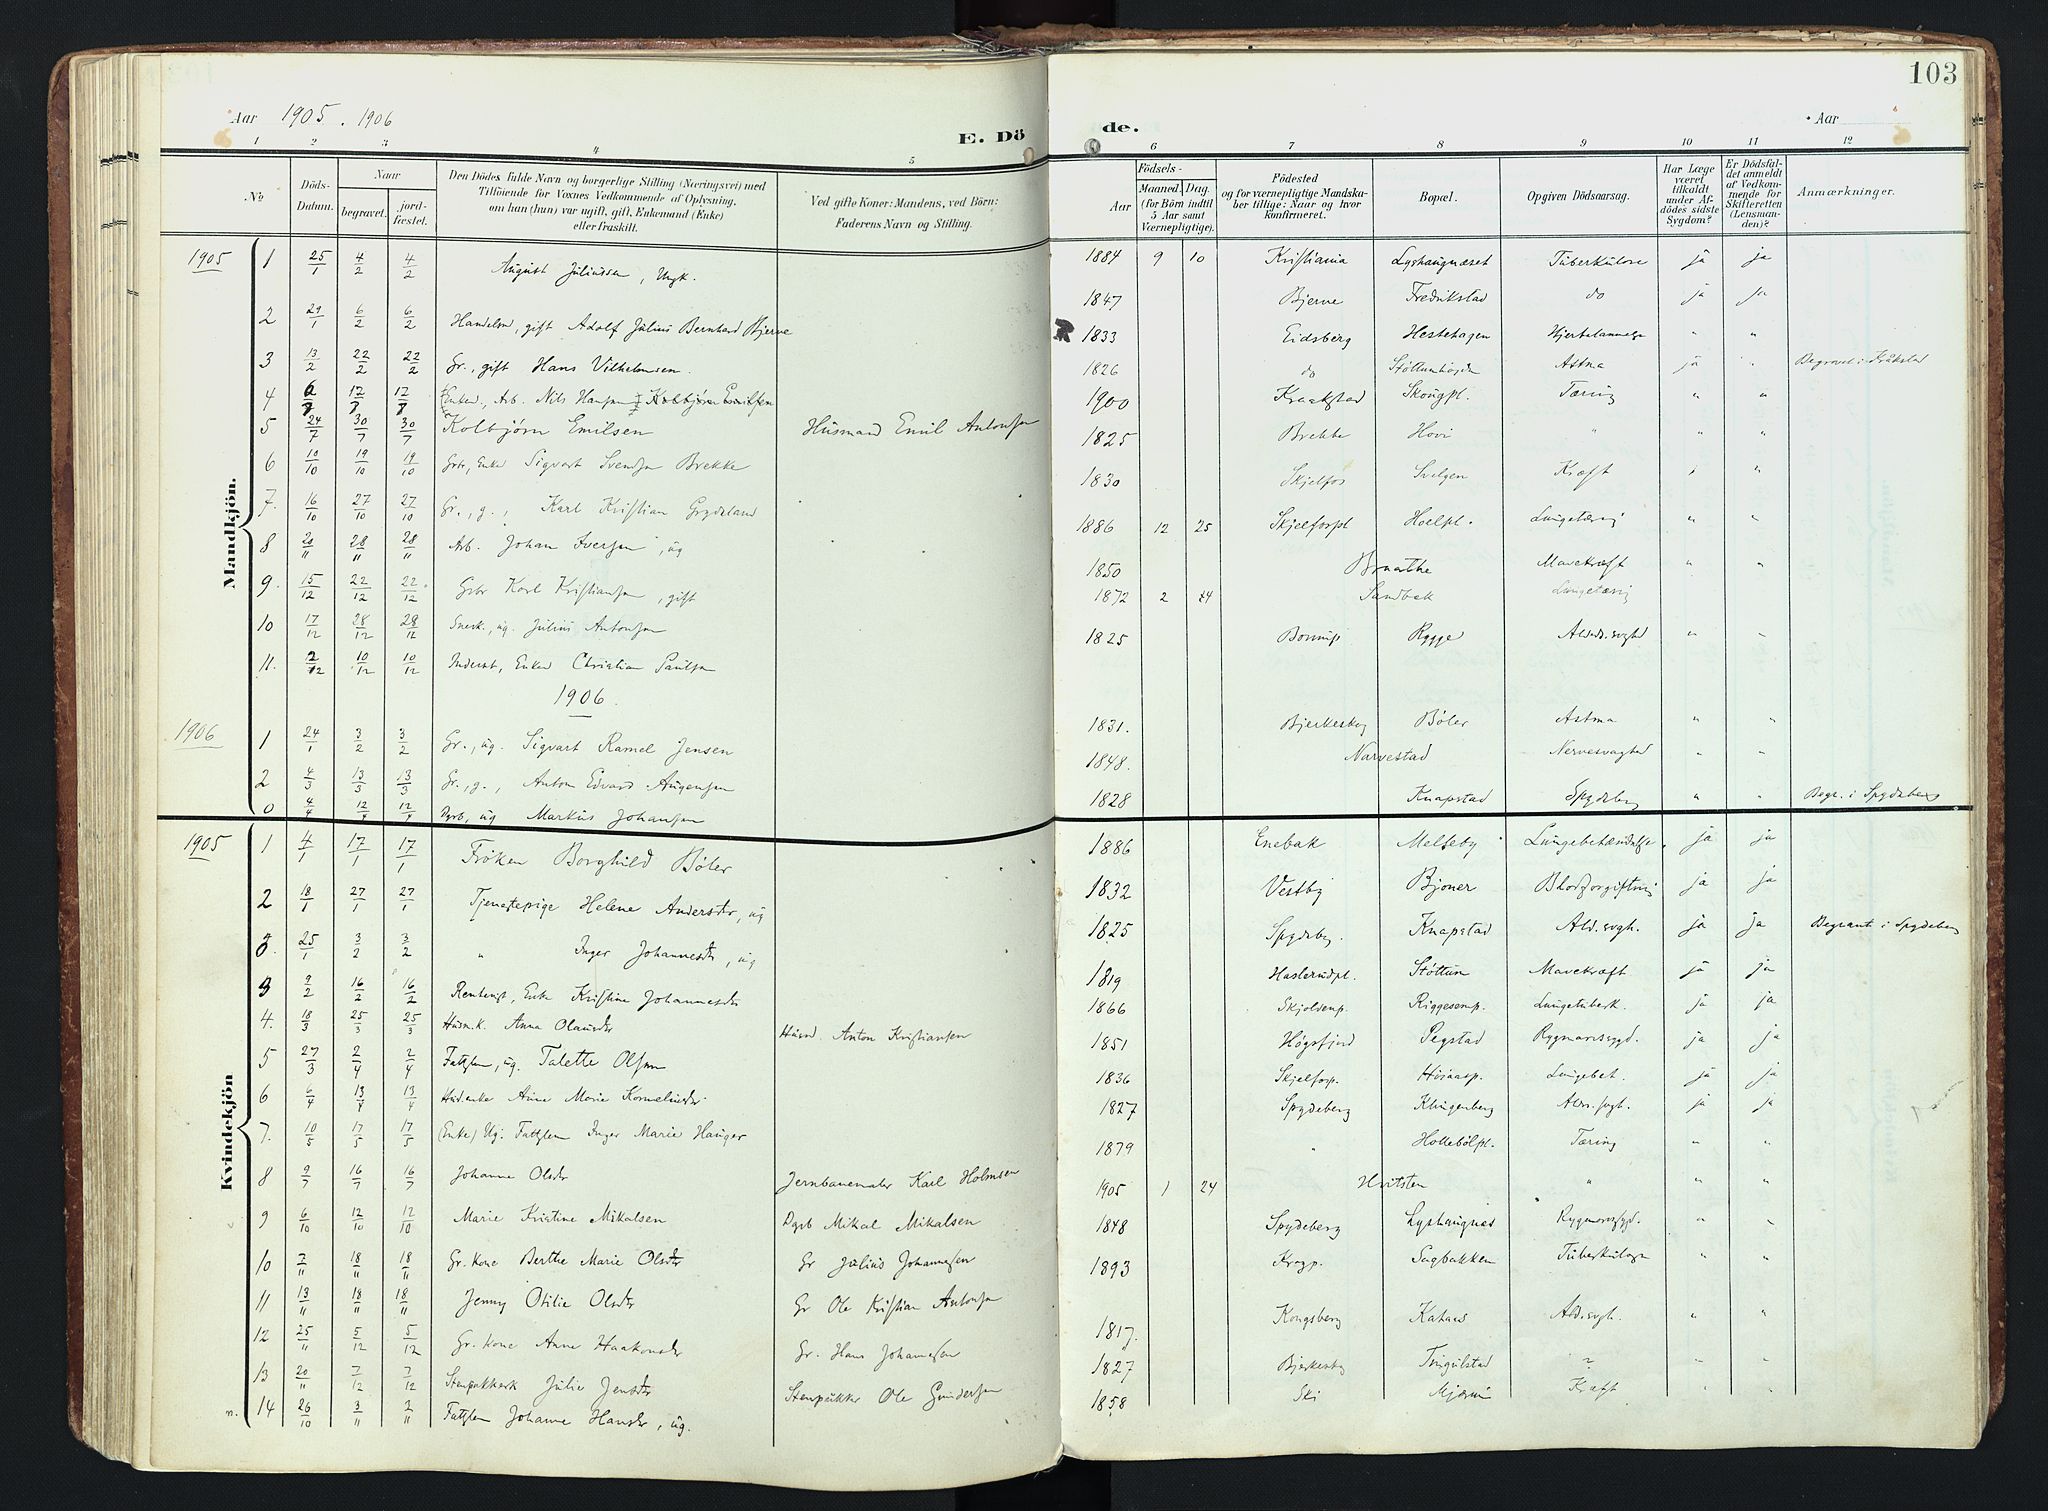 Aar 1905. 1906
E. Dö
de.
Aar
103
1 2 3 4 5
6 7 8 9 10 11 12
No Döds-Datum. Naar begravet. jord-fæstet. Den Dödes fulde Navn og borgerlige Stilling (Næringsvei) med Tilföiende for Voxnes Vedkommende af Oplysning, om han (hun) var ugift, gift, Enkemand (Enke) eller fraskilt. Ved gifte Koner: Mandens, ved Börn: Faderens Navn og Stilling.
Födsels- Aar Maaned. Dag. (for Börn indtil 5 Aar samt Værnepligtige). Födested og for værnepligtige Mandskaber tillige: Naar og hvor konfirmeret. Bopæl. Opgiven Dödsaarsag. Har Læge været tilkaldt under Afdödes sidste Sygdom? Er Dödsfaldet anmeldt af Vedkommende for Skifteretten (Lensmanden)? Anmærkninger.
Mandkjön.
1905 1 25/1 4/2 4/2 August Juliussen, Ungk. 1884 9 10 Kristiania Lyshaugnæset Tuberkulose ja ja
2 29/1 6/2 6/2 Handelsm, gift Adolf Julius Bernhard Bjerve 1847 Bjerve Fredrikstad do ja ja
3 13/2 22/2 22/2 Gr., gift Hans Vilhelmsen. 1833 Eidsberg Hestehagen " "
4 Enkem., Arb. Nils Hansen 1826 do Astma ja " Begravet i Kråkstad
5 24/7 30/7 30/7 Kolbjørn Emilsen Husmand Emil Antonsen 1900 Kraakstad Skougpl. Tæring " "
6 10/10 19/10 19/10 Gbr, Enkem Sigvart Svendsen Brekke 1825 Brekke Hovi " " "
7. 16/10 27/10 27/10 Gr., g., Karl Kristian Grydeland 1830 Skjelfos Svelgen Kræft " "
8 20/11 28/11 28/11 Arb. Johan Iversen, ug 1886 12 25 Skjelfospl Hoelpl. Lungetæring " "
9. 15/12 22/12 22/12 Gbr Karl Kristiansen, gift 1850 Braarthe Mavekræft " "
10 17/12 28/12 28/12 Snedk., ug. Julius Antonsen 1872 2 24 Sandbæk Lungetæring
11. 2/12 10/12 10/12 Inderst, Enkem Christian Paulsen 1825 Rygge Aldrd.svghd " "
1906
1906 1 24/1 3/2 3/2 Gr., ug. Sigvart Ramel Jensen 1831. Bjerkesby Bøler Astma " "
2 4/3 13/3 13/3 Gr., g., Anton Edvard Augensen 1848. Narvestad Nervesvaghed " "
0 4/4 12/4 12/4 Dgrb, ug Markus Johansen 1828 Knapstad Spydeberg " " Begr. i Spydeberg
Kvindekjön
1905 1 4/1 17/1 17/1 Frøken Borghild Bøler 1886 Enebak Melleby Lungebetændelse. ja ja
2 18/1 27/1 27/1 Tjenestepige Helene Andersdtr, ug 1832 Vestby Bjoner Blodforgiftning ja ja
0. 25/1 3/2 3/2 " Inger Johannesdtr, ug 1825 Spydeberg. Knapstad Ald.svgh. ja ja Begravet i Spydeberg
3 9/2 16/2 16/2 Enke Kristine Johannesdtr 1819 Haslerudpl. Støttum Mavekræft ja ja
4. 18/3 25/3 25/3 Husm.k. Anna Olausdtr Husmd. Anton Kristiansen 1866 Skjoldemp. Riggesemp. Lungetuberk. ja ja
5 27/3 2/4 2/4 Fattglem, ug. Talette Olsen 1851 Høgsfjord Pegstad Rygmarvsygd. ja ja
6 6/4 13/4 13/4 Husm.enke Anne Marie Korneliusdtr. 1836 Skjelfosp. Lungebet. ja ja
7. 10/5 17/5 17/5 (Enke) Ug. Fattglem Inger Marie Hauger 1827 Spydeberg Klingenberg Aldr.svgh. ja ja
8 9/7 16/7 16/7 Johanne Olsdtr Jernbanemaler Karl Holmsen 1879 " Hollebölpl. Tæring " "
9 6/10 12/10 12/10 Marie Kristine Mikalsen Dgrb Mikal Mikalsen 1905 1 24 Hvitsten " " "
10 7/11 18/11 18/11 Gr. kone Berthe Marie Olsdtr Gr Julius Johannesen 1848 Spydeberg Lyshaugnæs Rygmarvsygd. " "
11 13/11 18/11 18/11 Jenny Otilie Olsdtr Gr Ole Kristian Antonsen 1893 Krogp. Sagbakken Tuberkulose " "
12 25/11 5/12 5/12 Gr. kone Anne Haakonsdtr Gr. Hans Johannesen 1817. Kongsberg Ald.svgh. " "
13 20/11 7/12 7/12 Julie Jensdtr Stenpukker Ole Gundersen 1827 Bjerkesby Tingulstad ? " "
14 26/10 3/11 2/11 Fattglem Johanne Hansdtr, ug. 1858 Ski Mjærum Kræft " "